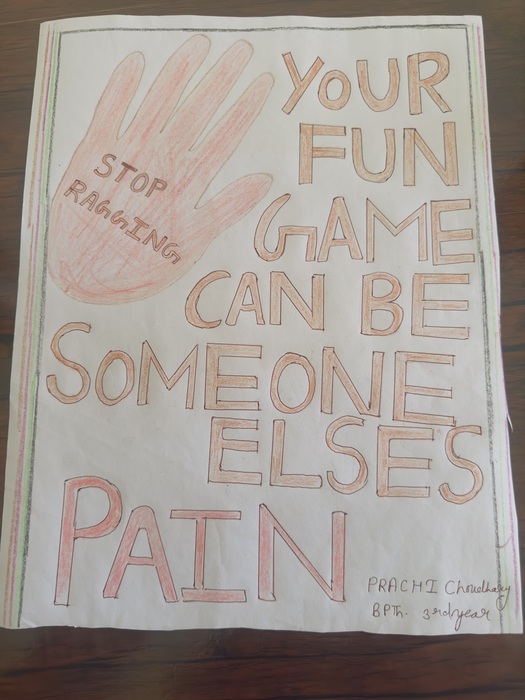 STOP
RAGGING
YOUR
FUN
GAME
CAN BE
SOMEONE
ELSES
PAIN
PRACHI Choudhary
BPTh. 3rd year